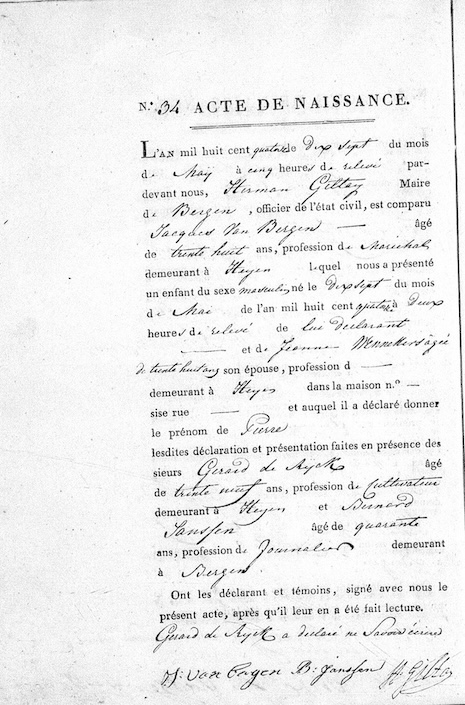 N.° 34 ACTE DE NAISSANCE.
L'AN mil huit cent quatorze le dix sept du mois
de Maÿ à cinq heures de relevé par-
devant nous, Herman Giltay Maire
de Bergen, officier de l'état civil, est comparu
Jacques Van Bergen — âgé
de trente huit ans, profession de Marechal
demeurant à Heyen lequel nous a présenté
un enfant du sexe masculin né le dix sept du mois
de Mai de l'an mil huit cent quatorze à deux
heures de relevé de lui declarant
— et de Jeanne Mennekers âgée
de trente huit ans son épouse, profession d —
demeurant à Heyen dans la maison n.° —
sise rue — et auquel il a déclaré donner
le prénom de Pierre
lesdites déclaration et présentation faites en présence des
sieurs Gerard de Ryck âgé
de trente neuf ans, profession de Cultivateur
demeurant à Heyen et Bernard
Janssen âgé de quarante
ans, profession de Journalier demeurant
à Bergen.
Ont les déclarant et témoins, signé avec nous le
présent acte, après qu'il leur en a été fait lecture.
Gerard de Ryck a declaré ne Savoir écrire
van Bergen B: Janssen H. Giltay